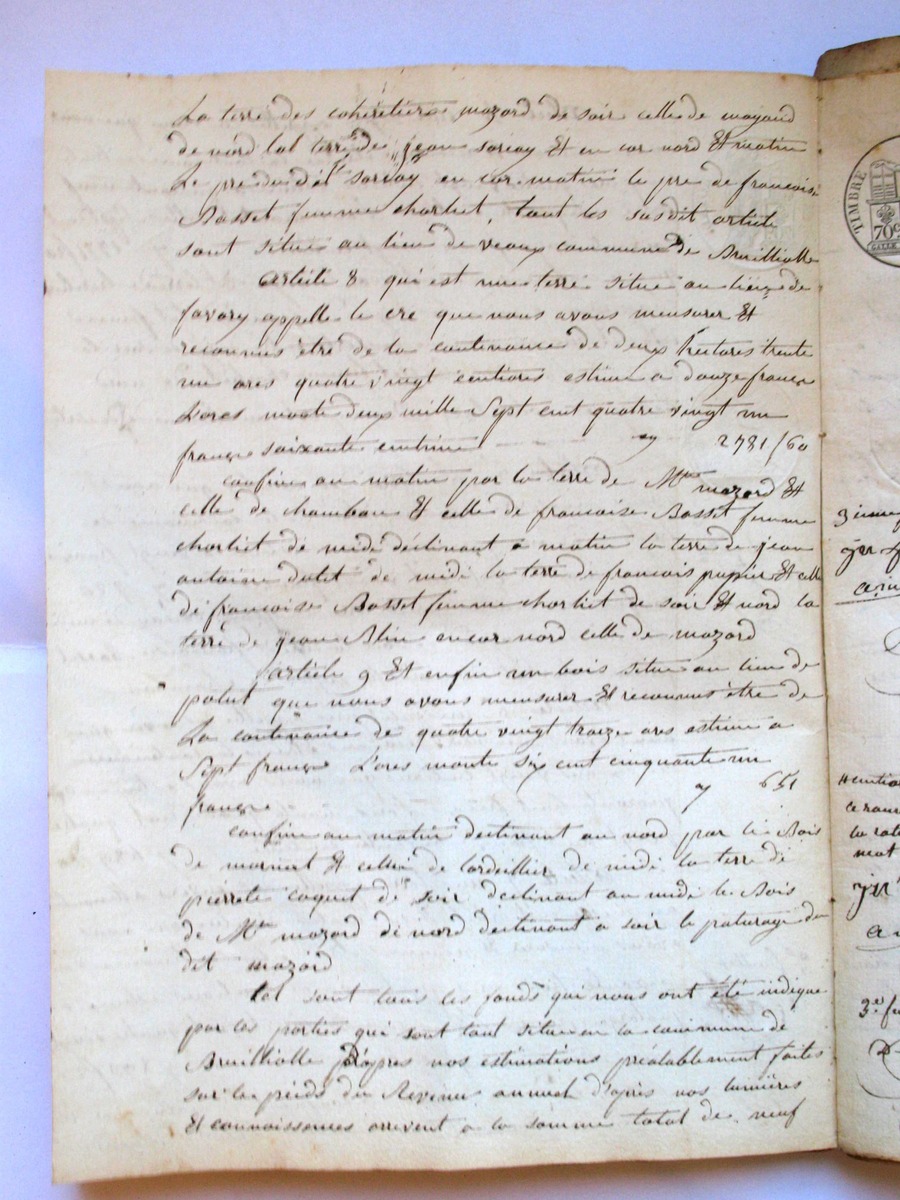 La terre des coheretiers mazard de soir celle de mayaud
de nord lal terre de jean sarcay Et en cor nord Et matin
Le pre dudit sarcay en cor matin le pre de francoise
Basset femme charliet, tout les susdit article
sont situe au lieu de veaux commune de Bruilliolle
article 8 qui est une terre situe au lieu de
favory appelle le cre que nous avons mensurer Et
reconnus être de la contenance de deux hectares trente
un ares quatre vingt centiares estime a douze francs
L'ares monte deux mille Sept cent quatre vingt un
francs soixante centime 2781/60
confine au matin par la terre de Mtre mazard Et
celle de chambau Et celle de francoise Basset femme
charliet de midi déclinant a matin la terre de jean
antoine dutet de midi la terre de francois pupier Et celle
de francoise Basset femme charliet de soir Et nord la
terre de jean Blin encor nord celle de mazard
article 9 Et enfin un bois situe au lieu de
palut que nous avons mensurer Et reconnus être de
La contenance de quatre vingt traize ares estime a
Sept francs L'ares monte six cent cinquante un
francs 651
confine au matin declinant au nord par le Bois
de marnat Et celui de cordellier de midi la terre de
pierrete coquet de soir declinant au midi le Bois
de Mtre mazard de nord declinant a soir le paturage du
dit mazard
tel sont tous les fonds qui nous ont été indique
par les parties qui sont tout situe en la commune de
Bruilliolle d'apres nos estimations préalablement faites
sur le pieds du Revenus annuel d'après nos lumières
Et connaissances arrivent a la somme total de neuf
TIMBRE
70c
3ieme